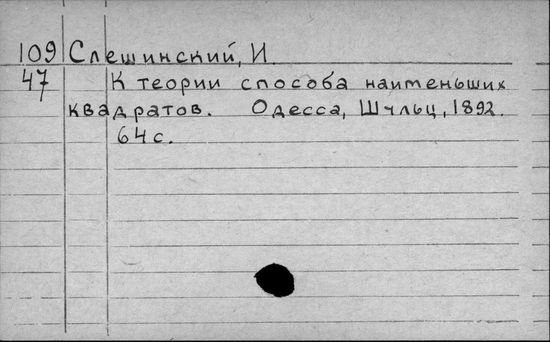 109 Слешинский, И.
47 К теории способа наименьших
квадратов. Одесса, Шульц, 1892.
64 с.